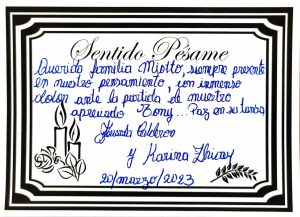 Sentido Pésame
Querida familia Miotto, siempre presente
en nuestro pensamiento, con inmenso
dolor ante la partida de nuestro
apreciado Tony... Paz en su tumba
Calderon
y Karina
20/marzo/2023